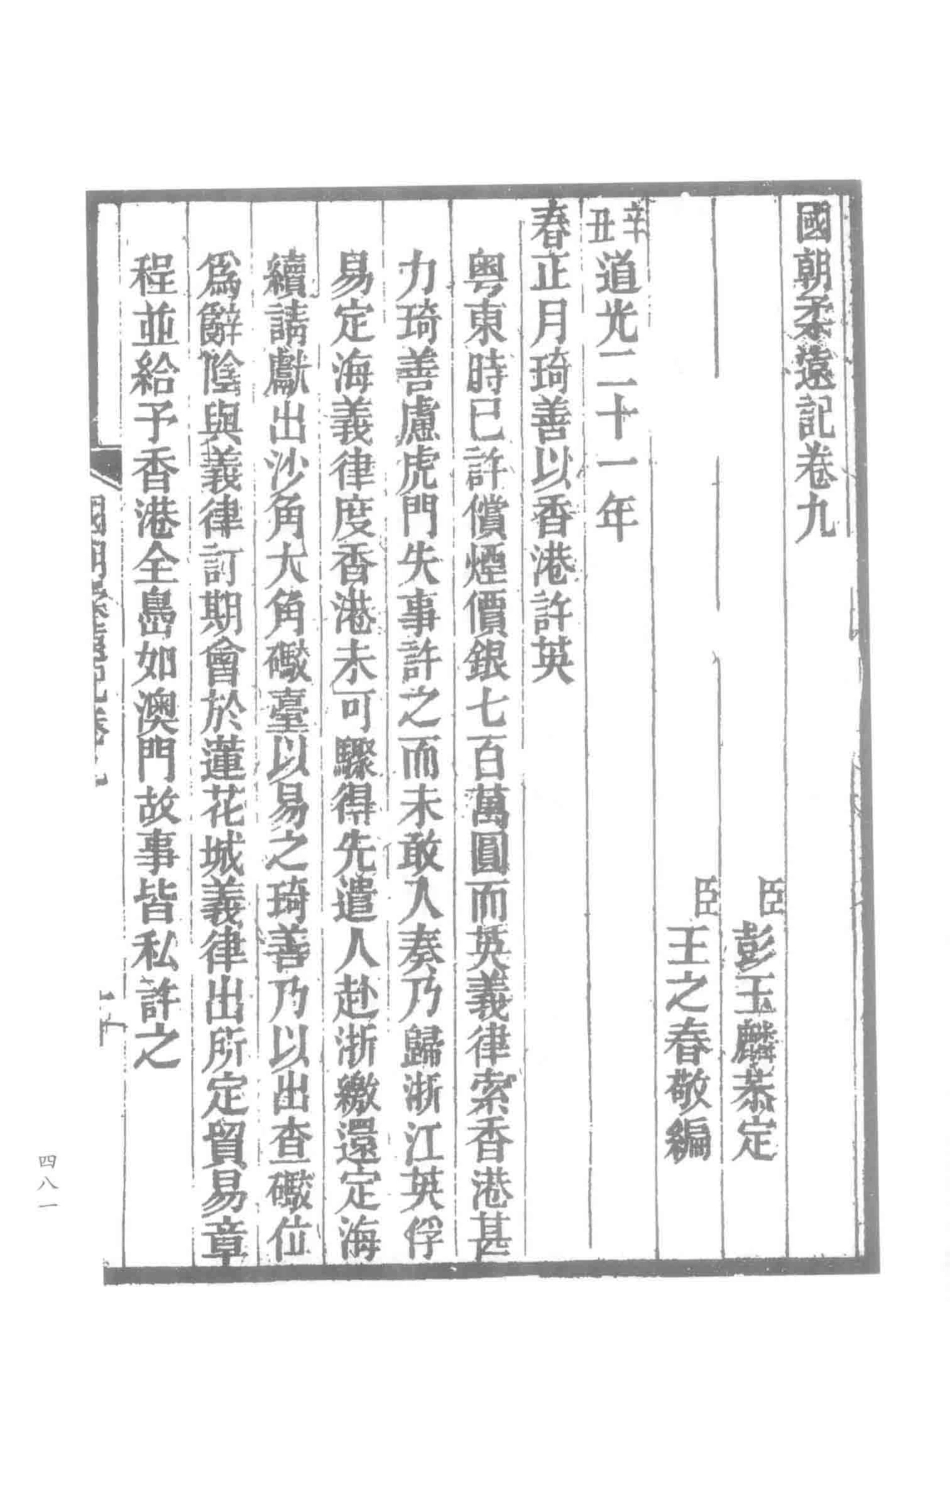 國朝柔遠記卷九
臣彭玉麟恭定
臣王之春敬編
辛丑道光二十一年
春正月琦善以香港許英
粵東時已許償煙價銀七百萬圓而英義律索香港甚
力琦善慮虎門失事許之而未敢入奏乃歸浙江英俘
易定海義律度香港未可驟得先遣人赴浙繳還定海
續請獻出沙角大角礮臺以易之琦善乃以出查礮位
爲辭陰與義律訂期會於蓮花城義律出所定貿易章
程並給予香港全島如澳門故事皆私許之
國朝柔遠記卷九
一
四八一